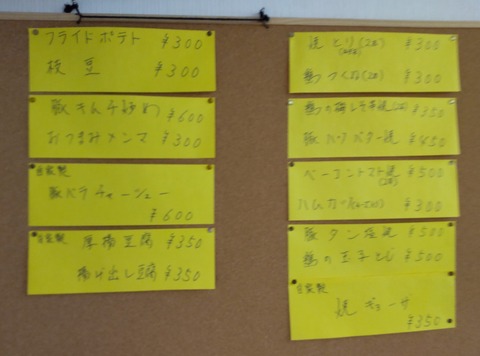 フライドポテト ¥300
枝豆 ¥300
豚キムチ炒め ¥600
おつまみメンマ ¥300
自家製
豚バラチャーシュー
¥600
自家製 厚揚豆腐 ¥350
揚げ出し豆腐 ¥350
焼とり(2本) ¥300
鶏つくね(2本) ¥300
鶏の梅しそ巻焼(2本) ¥350
豚バター焼 ¥450
ベーコントマト焼 ¥500
(2本)
ハムカツ ¥300
豚タン塩焼 ¥500
鶏の玉子とじ ¥500
自家製
焼ギョーザ
¥350